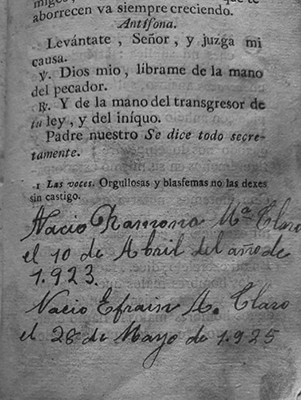 aborrecen va siempre creciendo.
Antífona.
Levántate, Señor, y juzga mi
causa.
℣. Dios mio, librame de la mano
del pecador.
℟. Y de la mano del transgresor de
tu ley, y del iniquo.
Padre nuestro Se dice todo secre-
tamente.
1 Las voces. Orgullosas y blasfemas no las dexes
sin castigo.
Nacio Ramona Mª Claro
el 10 de Abril del año de
1.923.
Nacio Efrain A. Claro
el 28 de Mayo de 1.925